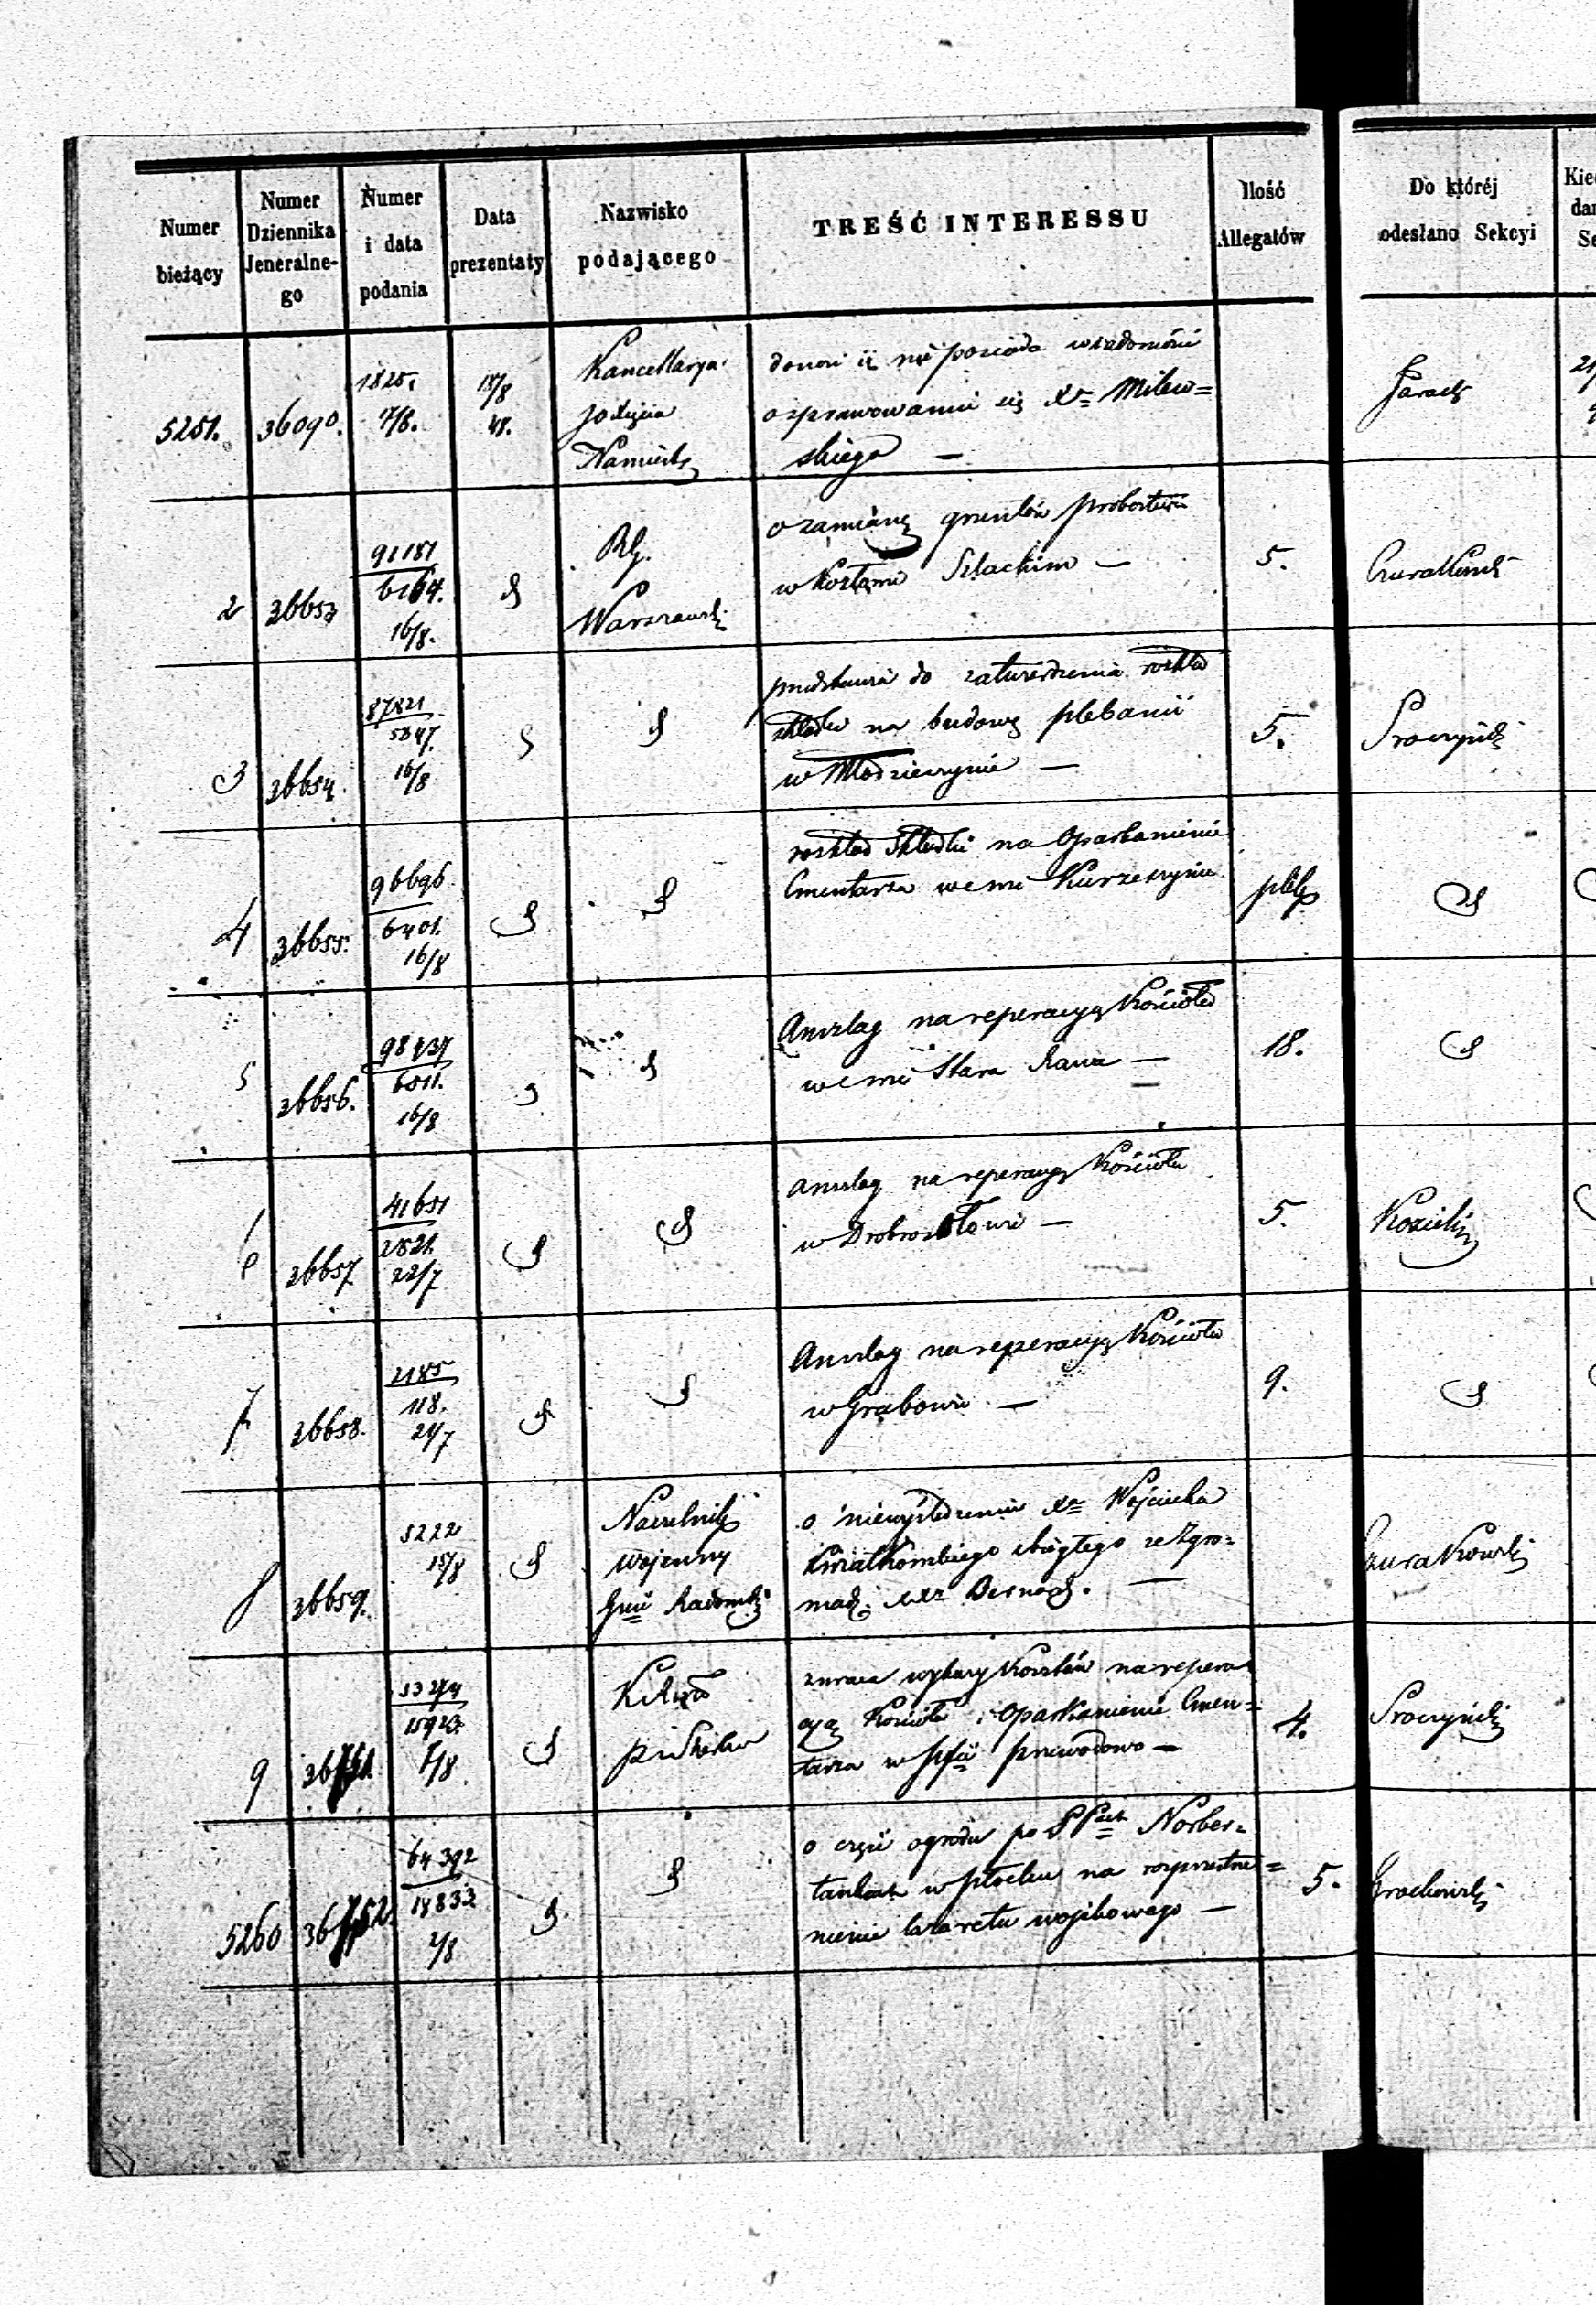 Numer bieżący
Numer Dziennika Jeneralne-go
Numer i data podania
Data prezentaty
Nazwisko podającego
TREŚĆ INTERESSU
Ilość Allegatów
Do któréj odesłano Sekcyi
5251. 36090. 1825. 17/8. 18/8 48.
Kancellarya
Xcięcia
donosi iż nie posiada wiadomości
o sprawowaniu się Xa Milew=
skiego —
2 36653 91181 6164. 16/8.
Rg.
Warszawski
o zamianę gruntów probostwa
w Szlachim —
5.
3 36654. 87821 5847. 16/8
przedstawia do zatwierdzenia rozkład
składki na budowę plebanii
w Młodzieszynie —
5.
4 36655. 96696 6401. 16/8
rozkład składki na Oparkanienie
Cmentarza we wsi Kurzeszynie
5 36656. 98437 6511. 16/8
Anszlag na reperacyą Kościoła
we wsi Stara Rawa —
18.
6 36657 41651 2821. 22/7
anszlag na reperacyę Kościoła
w —
5.
7 36658. 2185 118. 24/7
Anszlag na reperacyą Kościoła
w Grabowie —
9.
8 36659. 5222 15/8
Naczelnik
wojenny
Gnii Radomsk
o niewyśledzeniu Xa Wojciecha
Kwiatkowskiego zbiegłego ze Zgro=
madz. XXz Bernard. —
Czurakowski
9
zwraca wykazy Kosztów na repera
cyą Kościoła i Oparkanienie Cmen=
tarza w Przewodowo —
4.
5260 64392 18833 2/8
o część ogrodu po PP Norber=
tankach w Płocku na rozprzestrze=
nienie lazaretu wojskowego —
5. Grochowski